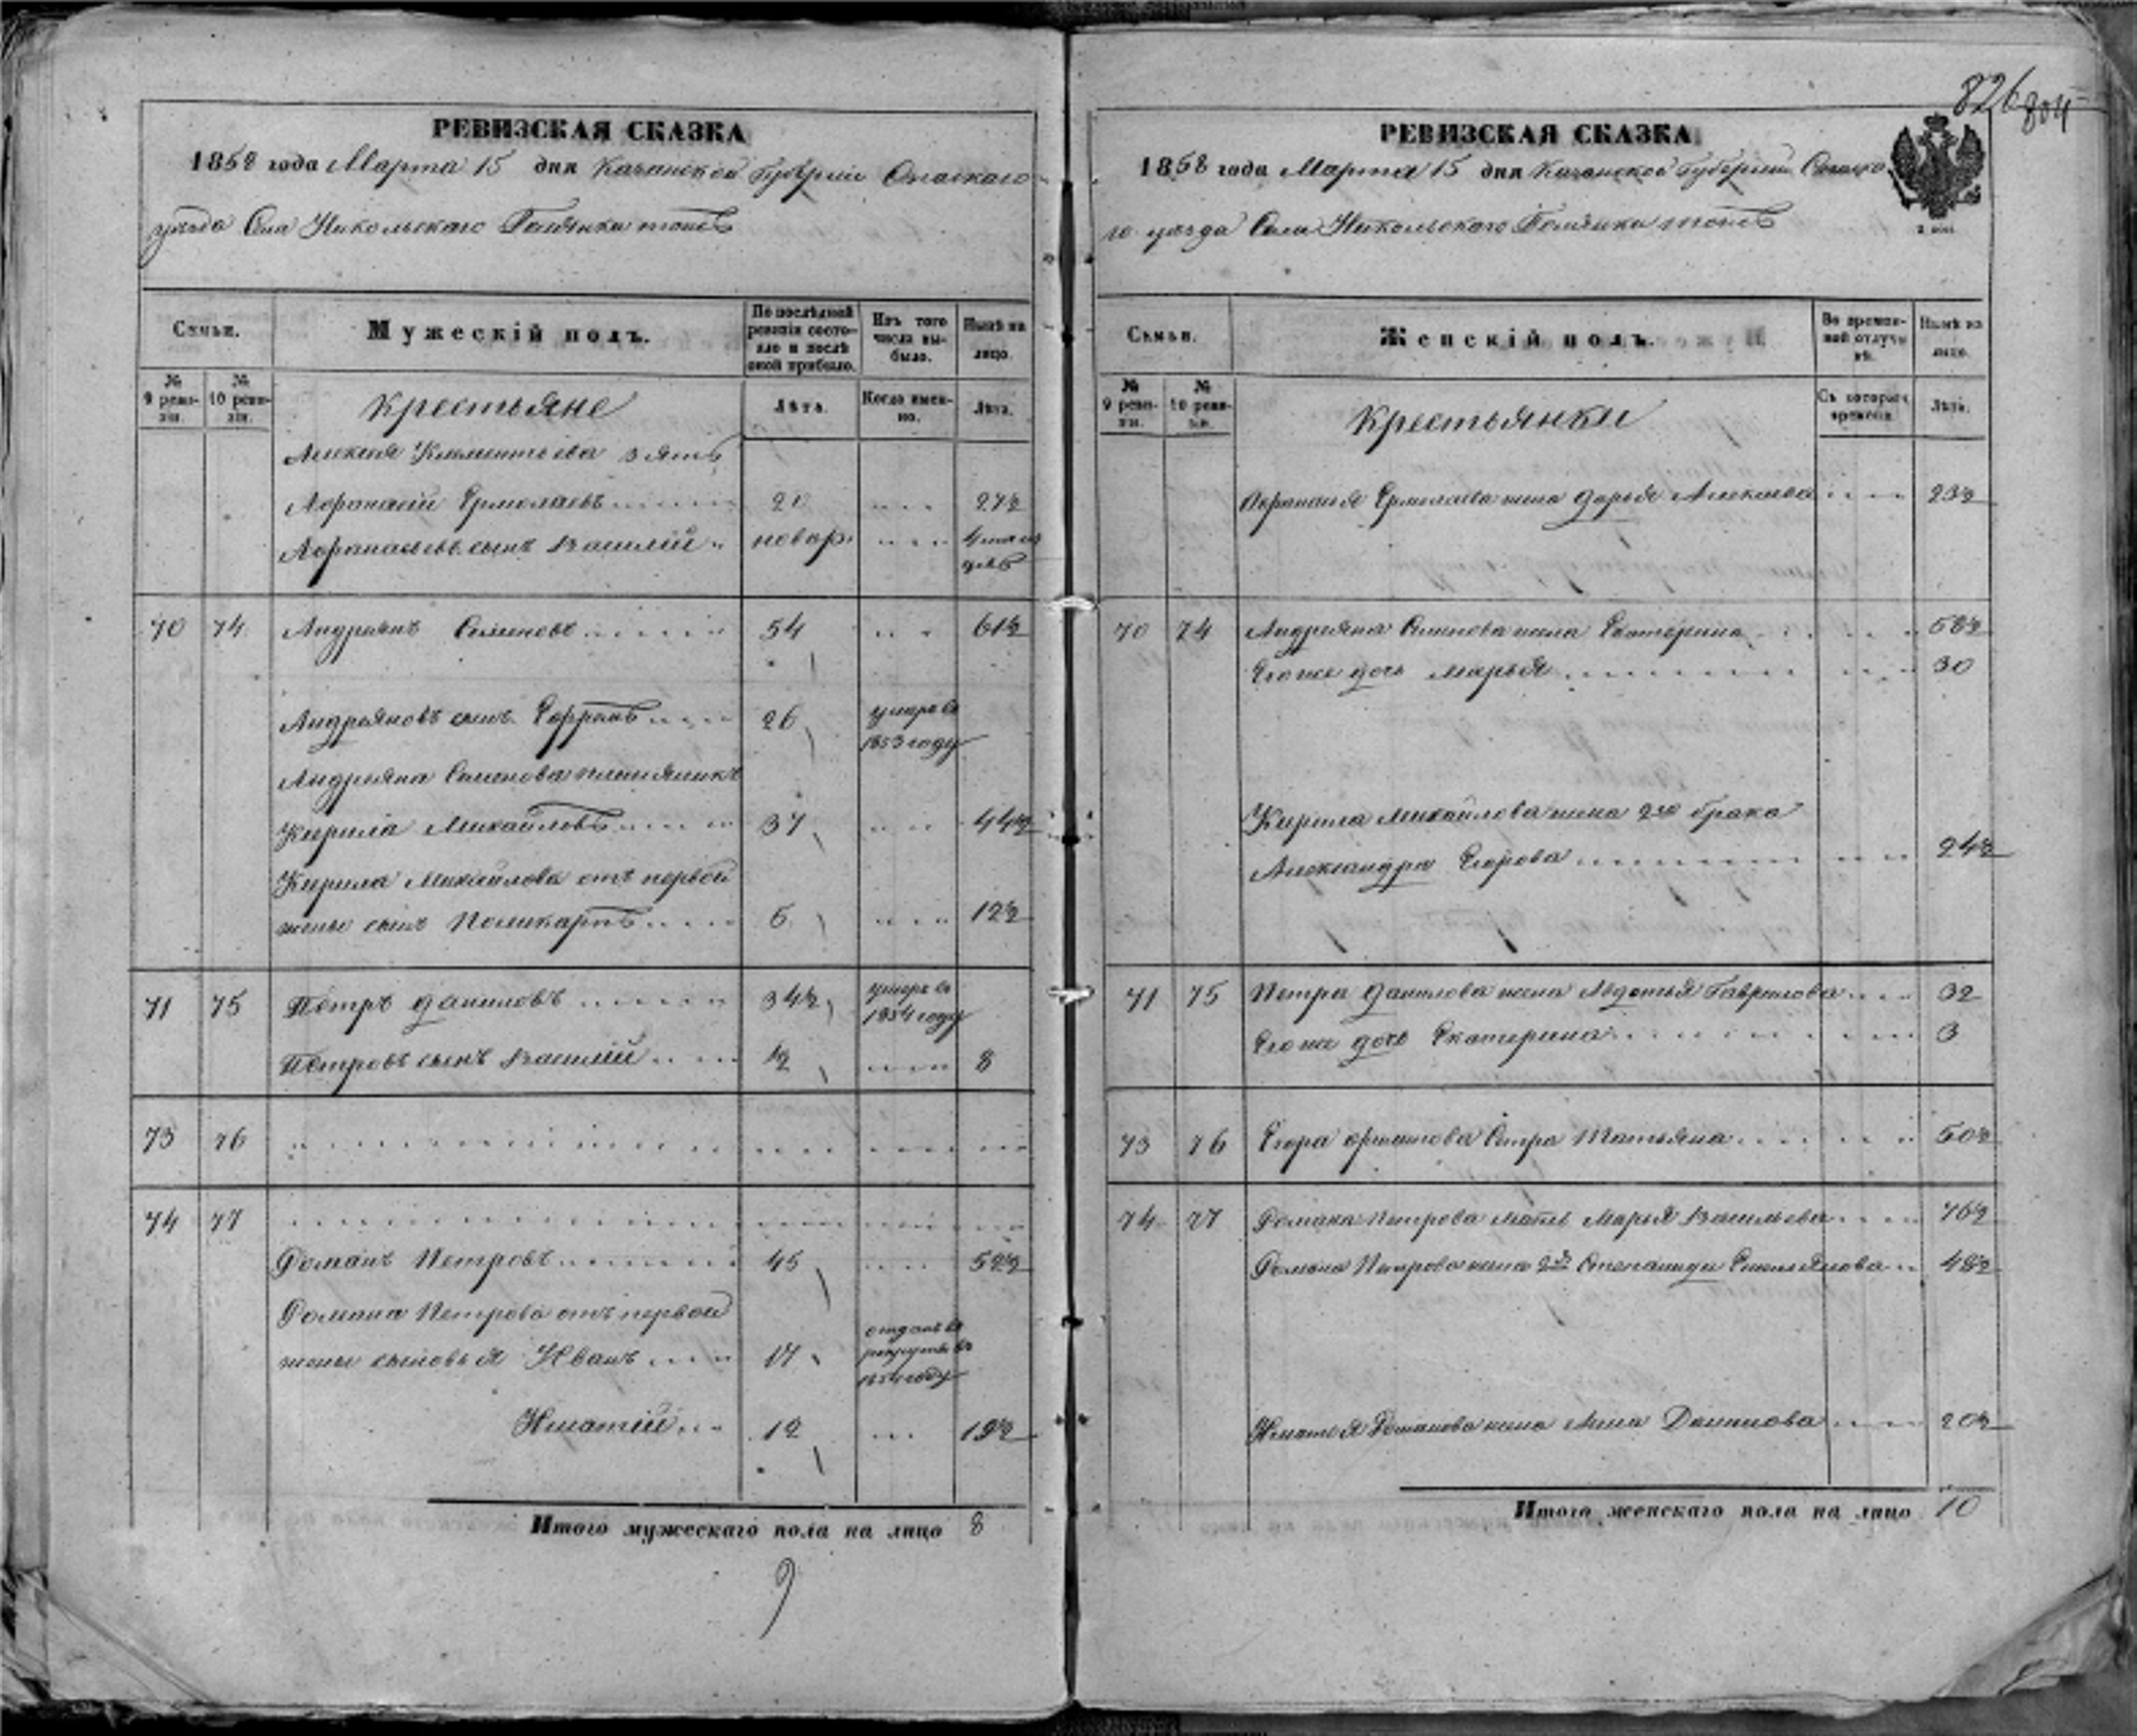 826 804
РЕВИЗСКАЯ СКАЗКА
1858 года Марта 15 дня Казанской Губернии Спаскаго
уезда Села Никольскаго Гальянка тожъ
Семьи.
Мужескій полъ.
По послѣдней ревизіи состояло и послѣ оной прибыло.
Изъ того числа выбыло.
Нынѣ на лицо.
№ 9 ревизіи.
№ 10 ревизіи.
Крестьяне
Лѣта.
Когда именно.
Лѣта.
Алексея Клементьева зять
Афанасій Ермолаевъ 20 27½
Афанасьевъ сынъ Василій новор. 4
70 74 Андреянъ Семеновъ 54 61½
Андреяновъ сынъ 26 умеръ въ 1853 году
Андреяна Семенова племянникъ
Кирила Михайловъ 37 44½
Кирила Михайлова отъ первой
жены сынъ Поликарпъ 5 12½
71 75 Петръ Даниловъ 34½ умеръ въ 1854 году
Петровъ сынъ Василій ½ 8
73 76
74 77
Романъ Петровъ 45 52½
Романа Петрова отъ первой
жены сыновья Иванъ 17 отданъ въ рекруты въ 1854 году
Игнатій 12 19½
Итого мужескаго пола на лицо 8
9
РЕВИЗСКАЯ СКАЗКА
1858 года Марта 15 дня Казанской Губернии Спаска
го уезда Села Никольскаго Гальянка тожъ
Семьи.
Женскій полъ.
Во временной отлучкѣ.
Нынѣ на лицо.
№ 9 ревизіи.
№ 10 ревизіи.
Крестьянки
Съ котораго времени.
Лѣта.
Афанасья Ермолаева жена Дарья Алексеева 23½
70 74 Андреяна Семенова жена Екатерина 58½
Его же дочь Марья 30
Кирила Михайлова жена 2го брака
Александра Егорова 24½
71 75 Петра Данилова жена Авдотья Гаврилова 32
Его же дочь Екатерина 3
73 76 Егора сестра Татьяна 50½
74 77 Романа Петрова мать Марья Васильева 76½
Романа Петрова жена 2я Степанида Емельянова 48½
Игнатья Романова жена Анна 20½
Итого женскаго пола на лицо 10